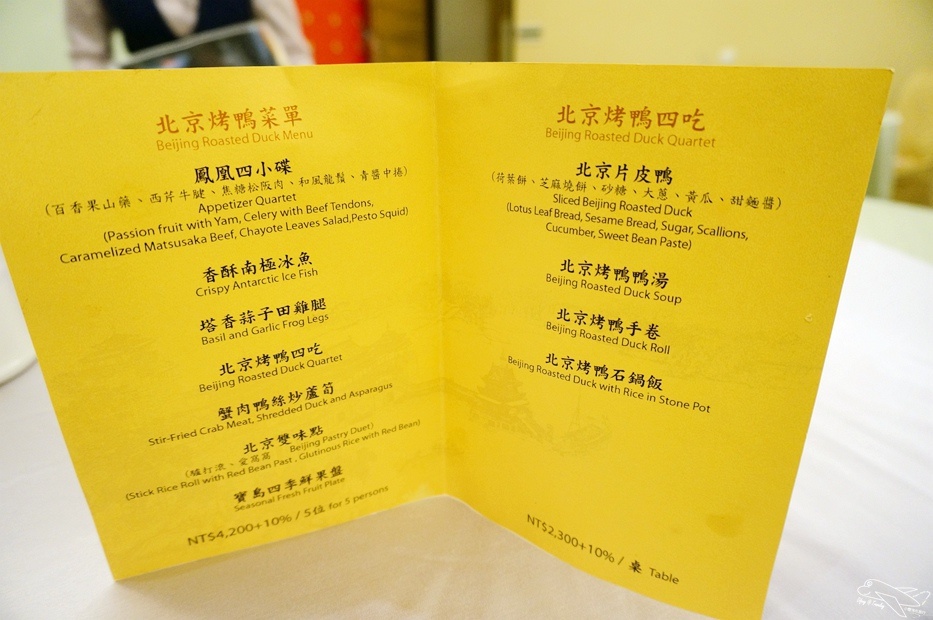 北京烤鴨菜單
Beijing Roasted Duck Menu
鳳凰四小碟
(百香果山藥、西芹牛腱、焦糖松阪肉、和風龍鬚、青醬中捲)
Appetizer Quartet
(Passion fruit with Yam, Celery with Beef Tendons,
Caramelized Matsusaka Beef, Chayote Leaves Salad,Pesto Squid)
香酥南極冰魚
Crispy Antarctic Ice Fish
塔香蒜子田雞腿
Basil and Garlic Frog Legs
北京烤鴨四吃
Beijing Roasted Duck Quartet
蟹肉鴨絲炒蘆筍
Stir-Fried Crab Meat, Shredded Duck and Asparagus
北京雙味點
(驢打滾、愛窩窩 Beijing Pastry Duet)
(Stick Rice Roll with Red Bean Past , Glutinous Rice with Red Bean)
寶島四季鮮果盤
Seasonal Fresh Fruit Plate
NT$4,200+10% / 5位 for 5 persons
北京烤鴨四吃
Beijing Roasted Duck Quartet
北京片皮鴨
(荷葉餅、芝麻燒餅、砂糖、大蔥、黃瓜、甜麵醬)
Sliced Beijing Roasted Duck
(Lotus Leaf Bread, Sesame Bread, Sugar, Scallions,
Cucumber, Sweet Bean Paste)
北京烤鴨鴨湯
Beijing Roasted Duck Soup
北京烤鴨手卷
Beijing Roasted Duck Roll
北京烤鴨石鍋飯
Beijing Roasted Duck with Rice in Stone Pot
NT$2,300+10% / 桌 Table